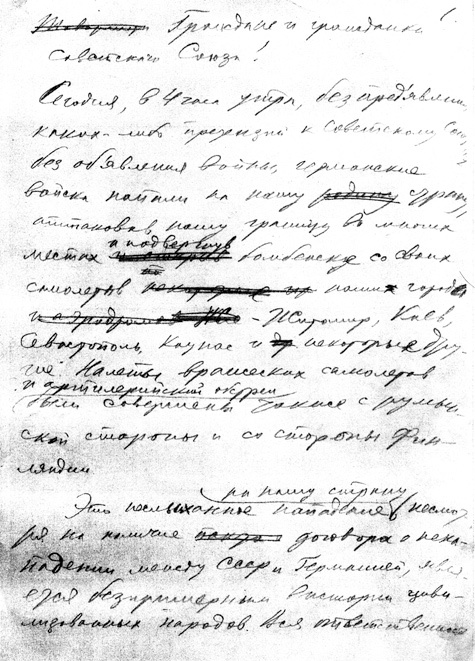 Граждане и гражданки
Советского Союза!
Сегодня, в 4 часа утра, без предъявлен
каких-либо претензий к Советскому Со
без об'явления войны, германские
войска напали на нашу родину страну,
атаковав, нашу границу во многих
местах и подвергнув бомбежке со своих
самолетов наших города
- Житомир, Киев,
Севастополь, Каунас и некоторые дру-
гие. Налеты вражеских самолетов
и артиллерийский обстрел
были совершены также с румын
ской стороны и со стороны Фин-
ляндии
на нашу страну
Это неслыханное нападение (несмот
ря на наличие договора о нена-
падении между СССР и Германией, явл
ется беспримерным в истории циви-
лизованных народов. Вся ответственно